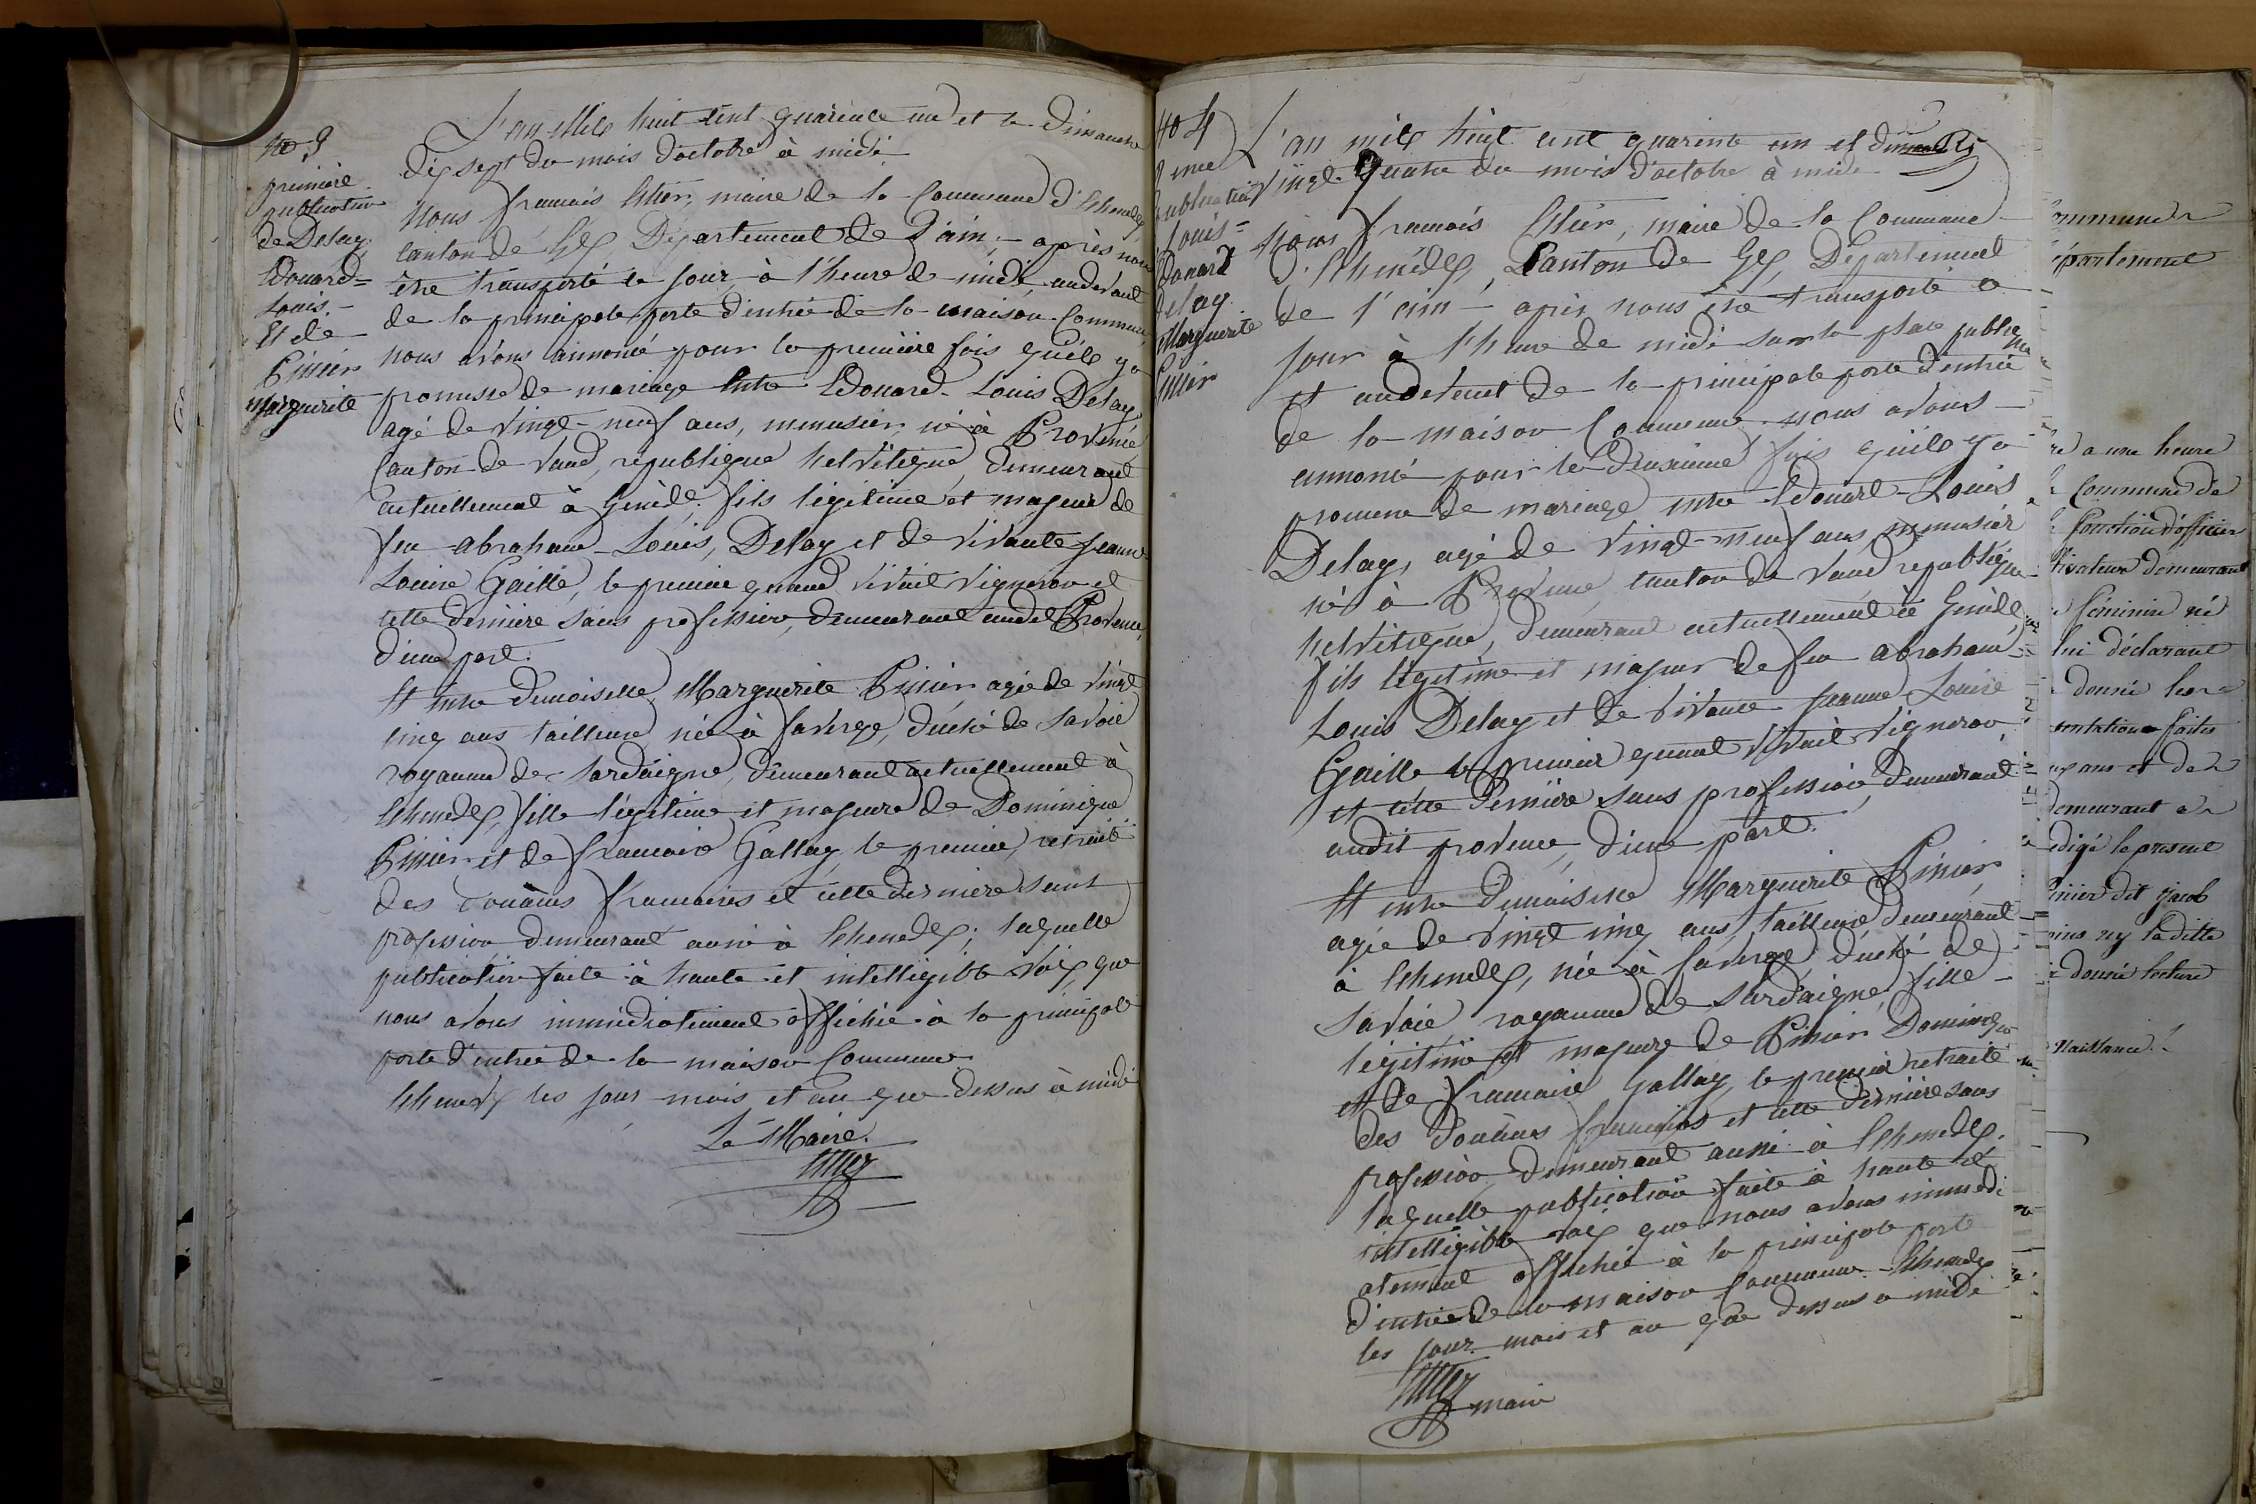 No 3
première
publication
de Delay
Edouard=
Louis.-
Et de
Pinier
Marguerite
L'an Mile huit cent quarente un et le Dimanche
dix sept du mois d'octobre à midi
Nous francois maire de la Commune d'Echenevex
Canton de Gex Département de l'ain.- après nous
être transporté ce jour, à l'heure de midi, audevant
de la principale porte d'entrée de la maison Commune,
nous avons annoncé pour la première fois qu'ile y a
promesse de mariage Entre Edouard-Louis Delay
agé de vingt-neuf ans, menuisier né à Provence
Canton de Vaud, republique helvétique, demeurant
actuellement à Genève. fils légitime et majeur de
feu abraham-Louis, Delay et de vivante jeanne
Louise Gaille, le premier quand vivait vigneron et
cette dernière sans profession, demeurant audit Provence,
d'une part.
Et entre Demoiselle Marguerite Pinier agée de vingt
cinq ans tailleuse née à faverge, duché de Savoie
royaume de Sardaigne, demeurant actuellement à
Echenevex, fille légitime et majeure de Dominique
Pinier et de francoise Gallay le premier, retraité
des Douânes francaises et cette dernière sans
profession demeurant aussi à Echenevex; laquelle
publication faite à haute et intelligible voix, que
nous avons immédiatement affichée à la principale
porte d'entrée de la maison Commune.
Echenevex les jour mois et an que dessus à midi
Le Maire.
No 4
2 eme
publication
Louis=
Edouard
Delay
Marguerite
Pinier
L'an mile huit cent quarente un et dimanche
vingt-quatre du mois d'octobre à midi
Nous francois maire de la Commune
d'Echenevex, Canton de Gex, Département
de l'ain - après nous être transporté ce
jour à l'heure de midi sur la place publique
et audevant de la principale porte d'entrée
de la maison Commune nous avons
annoncé pour la deuxième fois qu'ile y a
promesse de mariage entre Edouard-Louis
Delay, agé de vingt-neuf ans, menuisier
né à Provence, canton de Vaud republique
helvétique, demeurant actuellement à Genève,
fils légitime et majeur de feu abraham
Louis Delay et de vivante jeanne Louise
Gaille le premier quand vivait vigneron,
et cette dernière sans profession, demeurant
audit provence, d'une part.
Et entre Demoiselle Marguerite Pinier,
agée de vingt cinq ans tailleuse demeurant
à Echenevex, née à faverge, duché de
Savoie royaume de Sardaigne, fille
légitime et majeure de Pinier Dominique
et de francoise Gallay, le premier retraité
des Douânes francaises et cette dernière sans
profession demeurant aussi à Echenevex.
laquelle publication faite à haute et
intelligible voix que nous avons immédi
atement affichée à la principale porte
d'entrée de la maison Commune. Echenevex
les jour mois et an que dessus a midi
maire
Commune
département
a une heure
Commune de
fonction d'officier
demeurant
féminin né
déclarant
donné
faites
ans et de
demeurant a
le present
dit jacob
ladite
donné lecture
Naissance.